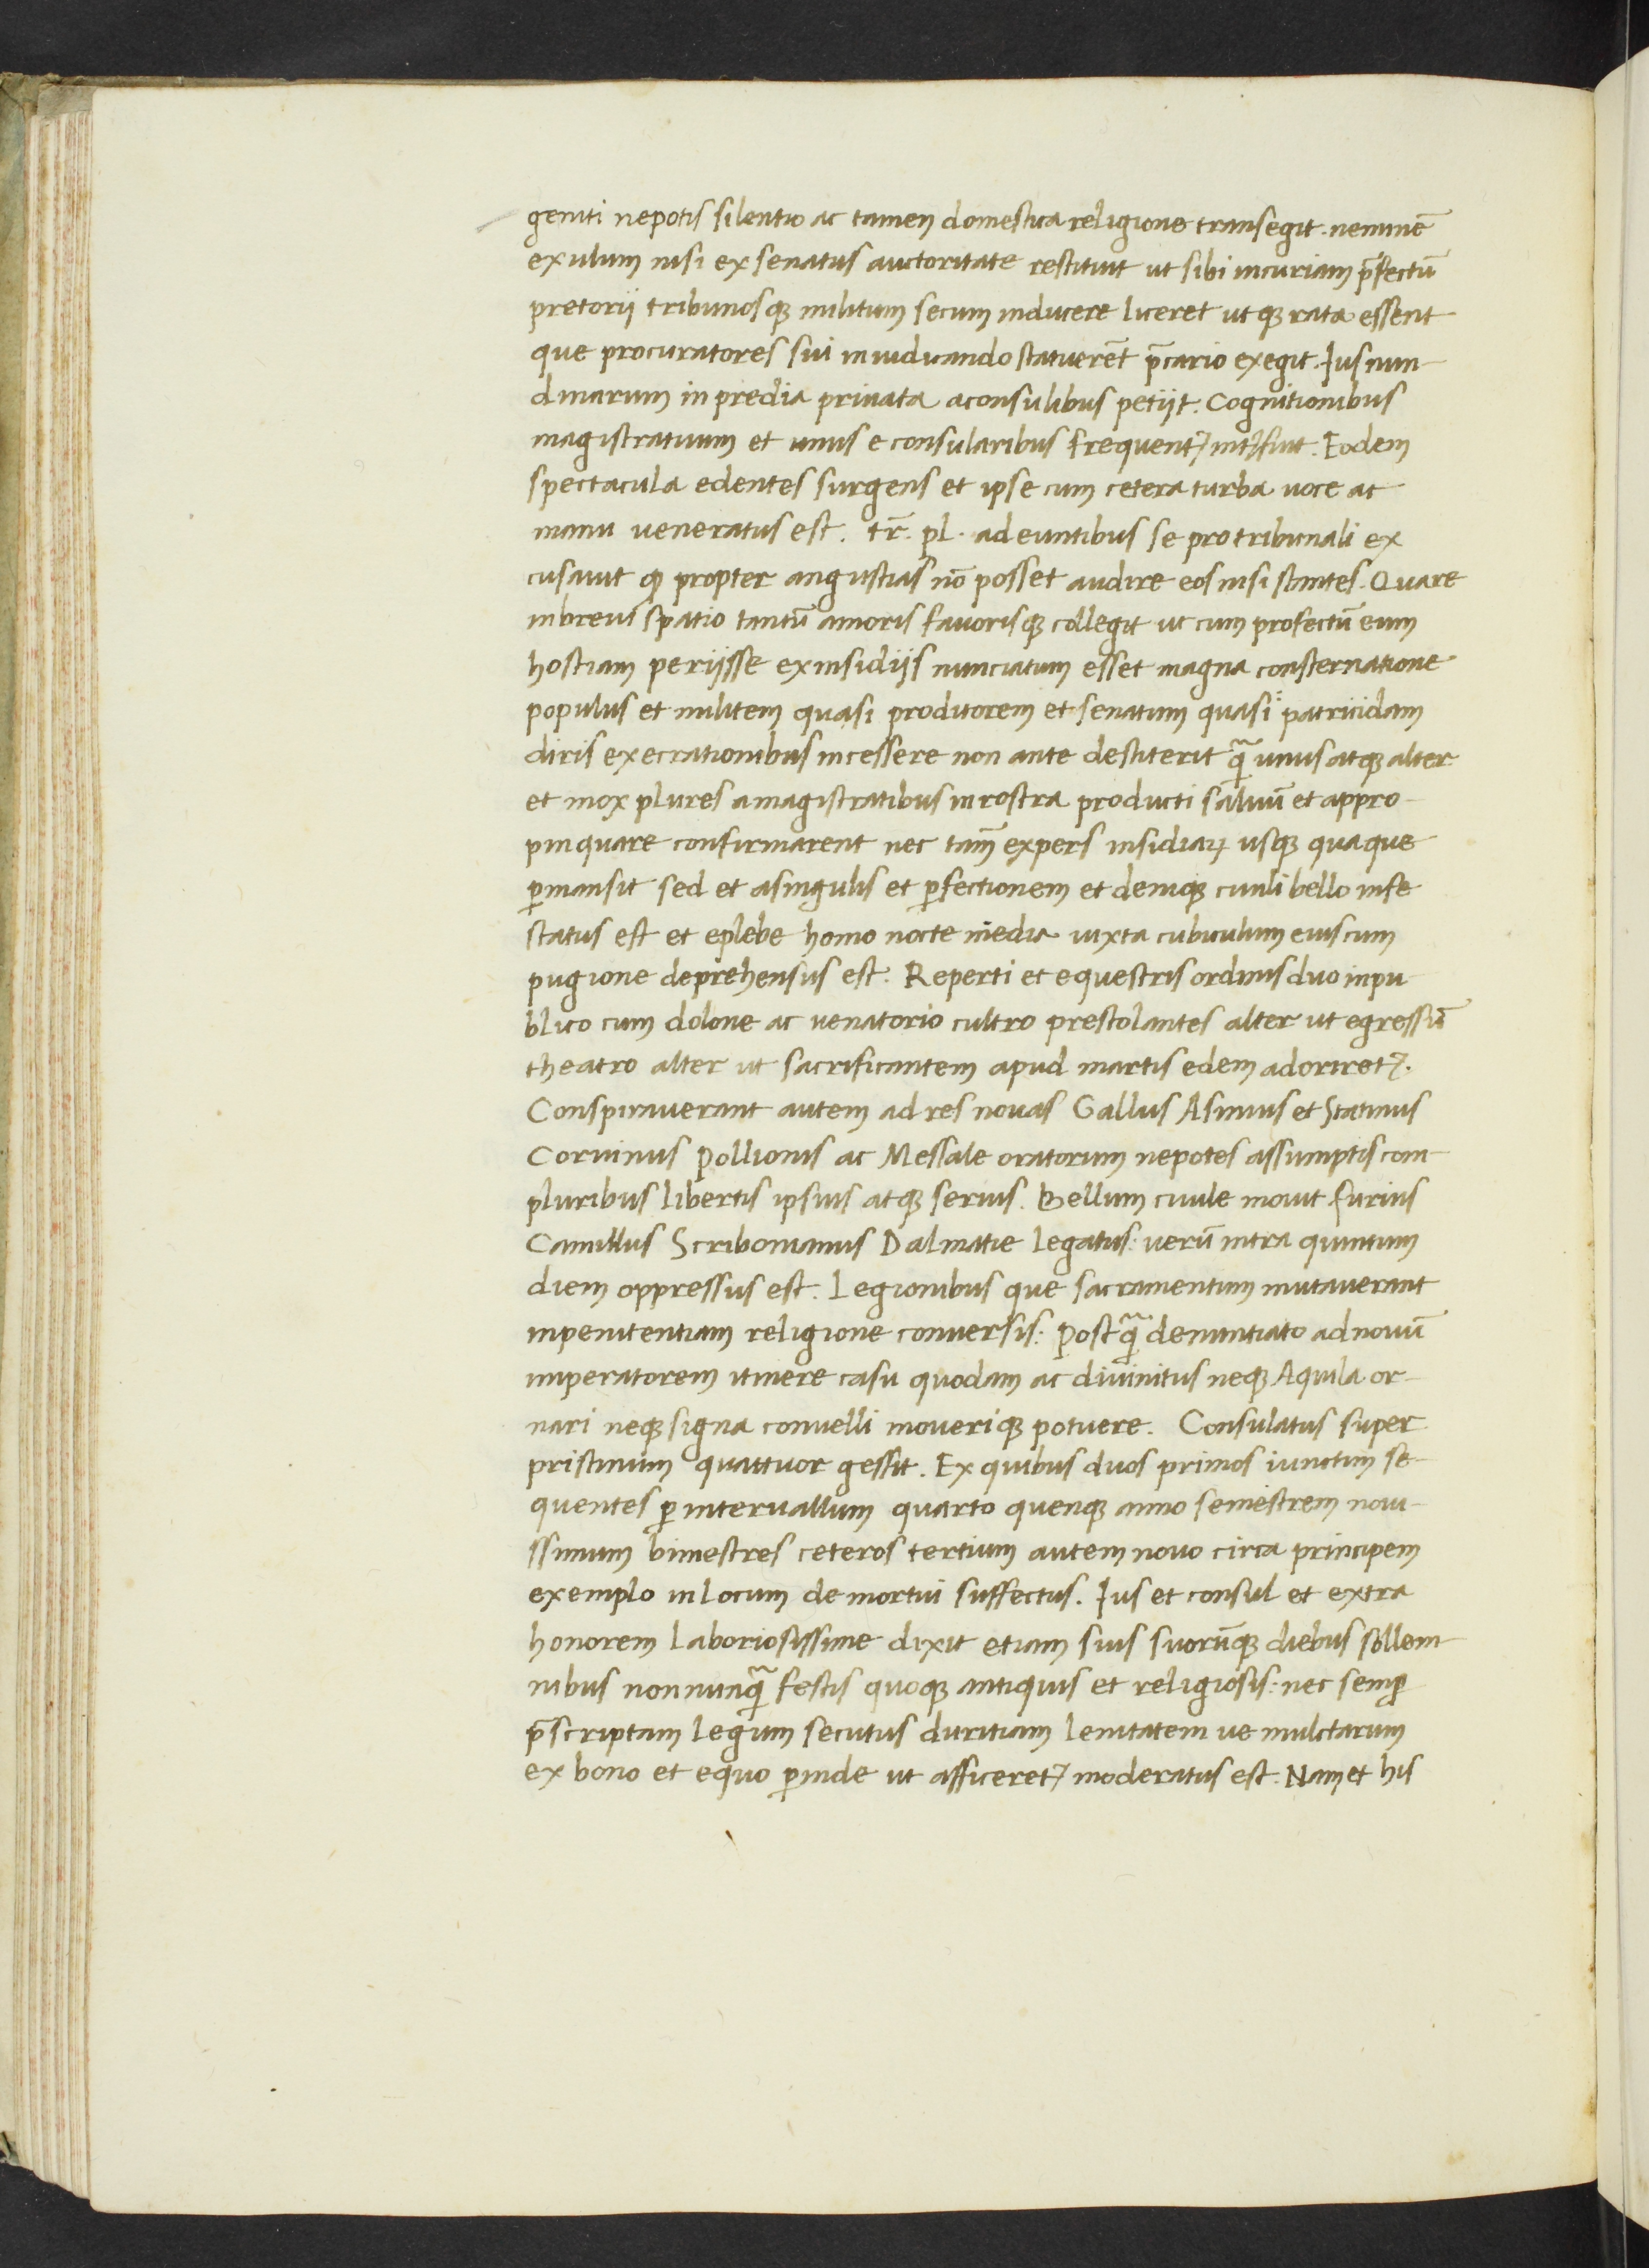 geniti nepotis silentio ac tamen domestica religione transegit. neminē
exulum nisi ex senatus auctoritate restituit ut sibi incuriam p̄fectū
pretorij tribunosqꝫ militum secum inducere liceret utqꝫ rata essent
que procuratores sui in iudicando statuerēt p̄cario exegit. Ius nun-
dinarum in predia priuata aconsulibus petijt. Cognitionibus
magistratuum et unus e consularibus frequentꝛ intꝛfuit. Eodem
spectacula edentes surgens et ipse cum cetera turba uoce ac
manu ueneratus est. tr̄. pl. adeuntibus se pro tribunali ex
cusauit ꝙ propter angustias nō posset audire eos nisi stantes. Quare
inbreui spatio tantū amoris fauorisqꝫ collegit ut cum profectū eum
hostiam perijsse ex insidijs nunciatum esset magna consternatione
populus et militem quasi proditorem et senatum quasi patricidam
diris execrationibus incessere non ante destiterit q̄ unus atqꝫ alter
et mox plures amagistratibus in rostra producti saluū et appro-
pinquare confirmarent nec tam̄ expers insidiaꝝ usqꝫ quaque
ꝑmansit sed et asingulis et ꝑfectionem et deniqꝫ ciuili bello infe
status est et eplebe homo nocte media iuxta cubiculum eius cum
pugione deprehensus est. Reperti et equestris ordinis duo inpu
blico cum dolone ac uenatorio cultro prestolantes alter ut egressū
theatro alter ut sacrificantem apud martis edem adoriretꝛ.
Conspirauerant autem ad res nouas Gallus Asinius et Statinus
Coruinus Pollionis ac Messale oratorum nepotes assumptis com-
pluribus libertis ipsius atqꝫ seruis. Bellum ciuile mouit furius
Camillus Scribonianus Dalmatie legatus: uerū intra quintum
diem oppressus est. Legionibus que sacramentum mutauerant
inpenitentiam religione conuersis: Postq̄ denuntiato ad nouū
imperatorem itinere casu quodam ac diuinitus neqꝫ Aquila or-
nari neqꝫ signa conuelli moueriqꝫ potuere. Consulatus super
pristinum quattuor gessit. Ex quibus duos primos iunctim se-
quentes ꝑ interuallum quarto quenqꝫ anno semestrem noui-
ssimum bimestres ceteros tertium autem nouo circa principem
exemplo in locum demortui suffectus. Ius et consul et extra
honorem laboriosissime dixit etiam suis suorūqꝫ diebus sollem-
nibus nonnunq̄ festis quoqꝫ antiquis et religiosis: nec semꝑ
p̄scriptam legum secutus duritiam lenitatem ue mulctarum
ex bono et equo ꝑinde ut afficeretꝛ moderatus est. Nam et his